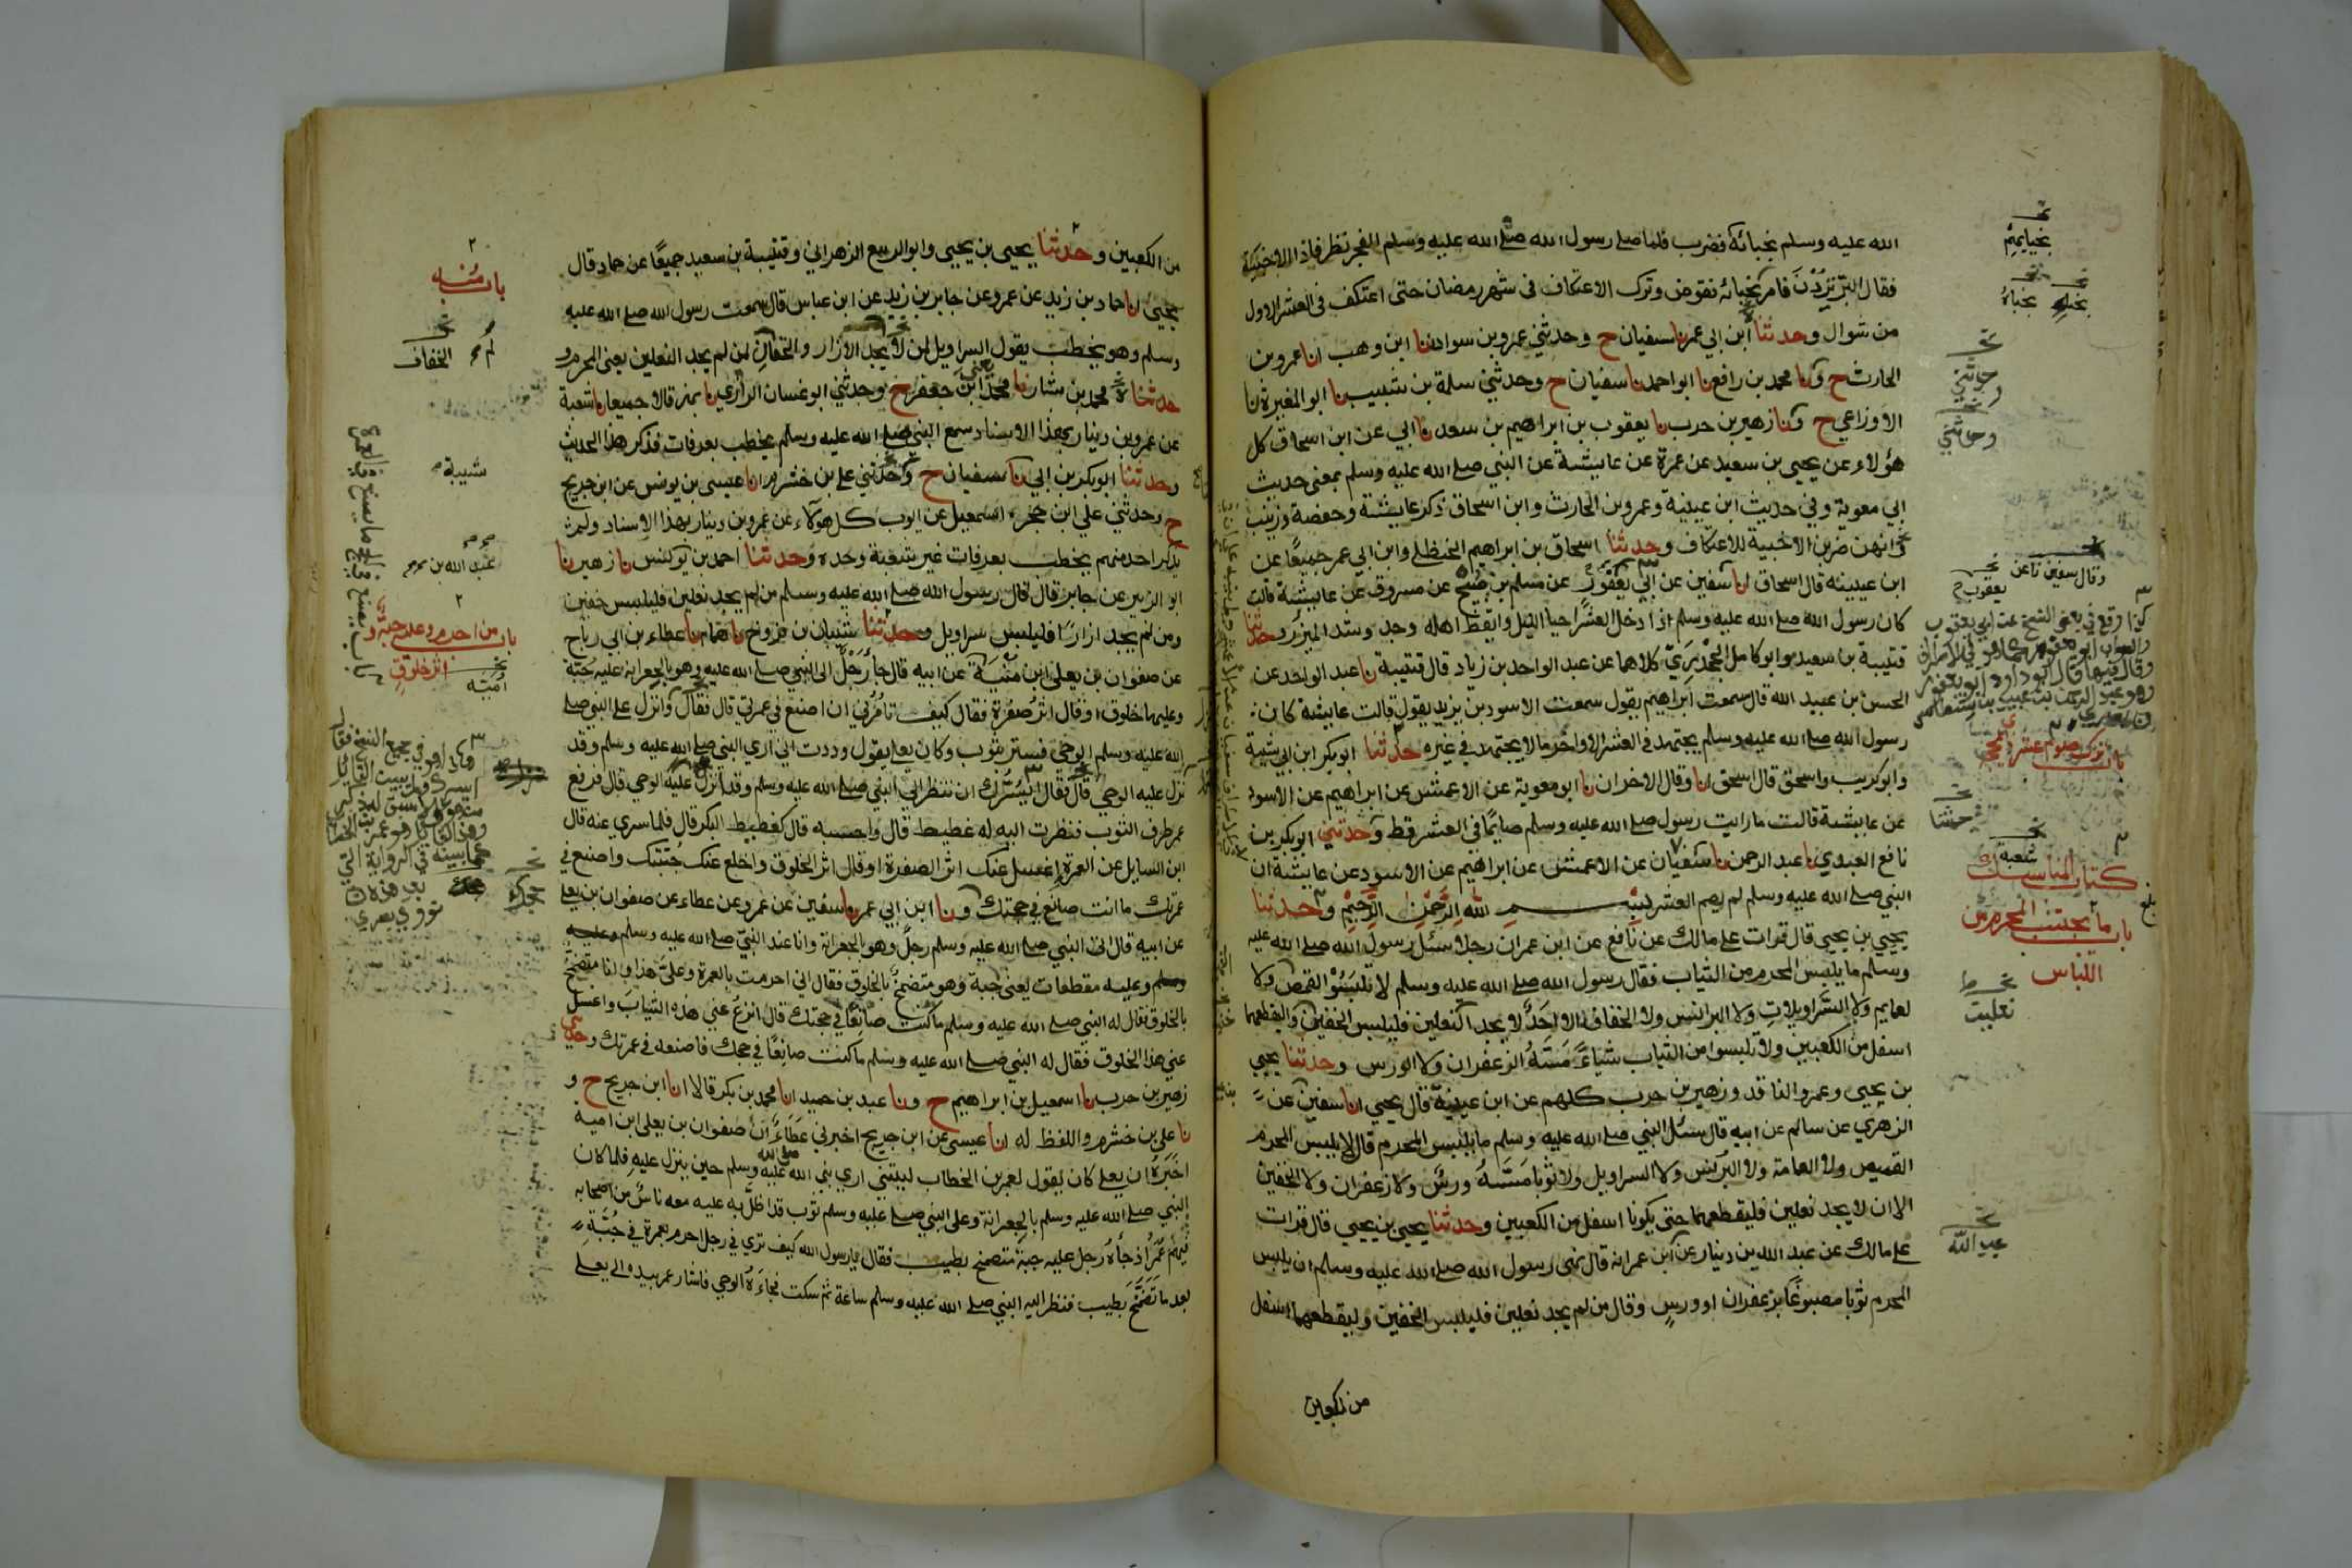 الله عليه وسلم بخبائه فضرب فلما صلى رسول الله صلى الله عليه وسلم الفجر نظر فاذا الاخبية
فقال البر تردن فامر بخبائه فقوض وترك الاعتكاف في شهر رمضان حتى اعتكف في العشر الاول
من شوال وحدثنا ابن ابي عمر نا سفيان ح وحدثني عمرو بن سواد انا ابن وهب انا عمرو بن
الحارث ح ونا محمد بن رافع نا ابو احمد نا سفيان ح وحدثني سلمة بن شبيب نا ابو المغيرة نا
الاوزاعي ح ونا زهير بن حرب نا يعقوب بن ابراهيم بن سعد نا ابي عن ابن اسحاق كل
هؤلاء عن يحيى بن سعيد عن عمرة عن عايشة عن النبي صلى الله عليه وسلم بمعنى حديث
ابي معوية وفي حديث ابن عيينة وعمرو بن الحارث وابن اسحاق ذكر عايشة وحفصة وزينب
انهن ضربن الاخبية للاعتكاف وحدثنا اسحاق بن ابراهيم الحنظلي وابن ابي عمر جميعا عن
ابن عيينه قال اسحاق انا سفين عن ابي يعفور عن مسلم بن صبيح عن مسروق عن عايشة قالت
كان رسول الله صلى الله عليه وسلم اذا دخل العشر احيا الليل وايقظ اهله وجد وشد الميزر وحدثنا
قتيبة بن سعيد وابو كامل الجحدري كلاهما عن عبد الواحد بن زياد قال قتيبة نا عبد الواحد عن
الحسن بن عبيد الله قال سمعت ابراهيم يقول سمعت الاسود بن يزيد يقول قالت عايشة كان
رسول الله صلى الله عليه وسلم يجتهد في العشر الاواخر ما لا يجتهد في غيره حدثنا ابو بكر ابن ابي شيبة
وابو كريب واسحق قال اسحق انا وقال الاخران نا ابو معوية عن الاعمش عن ابراهيم عن الاسود
عن عايشة قالت ما رايت رسول صلى الله عليه وسلم صايما في العشر قط وحدثني ابو بكر بن
نافع العبدي نا عبد الرحمن نا سفيان عن الاعمش عن ابراهيم عن الاسود عن عايشة ان
النبي صلى الله عليه وسلم لم يصم العشر بسم الله الرحمن الرحيم وحدثنا
يحيى بن يحيى قال قرات على مالك عن نافع عن ابن عمر ان رجلا سئل رسول الله صلى الله عليه
وسلم ما يلبس المحرم من الثياب فقال رسول الله صلى الله عليه وسلم لا تلبسوا القمص ولا
لعمايم ولا السراويلات ولا البرانس ولا الخفاف الا احد لا يجد النعلين فليلبس الخفين وليقطعهما
اسفل من الكعبين ولا تلبسوا من الثياب شياء مسه الزعفران ولا الورس وحدثنا يحيى
بن يحيى وعمرو الناقد وزهير بن حرب كلهم عن ابن عيينة قال يحيى انا سفين عن
الزهري عن سالم عن ابيه قال سئل النبي صلى الله عليه وسلم ما يلبس المحرم قال لا يلبس المحرم
القميص ولا العمامة ولا البرنس ولا السراويل ولا ثوبا مسه ورس ولا زعفران ولا الخفين
الا ان لا يجد نعلين فليقطعهما حتى يكونا اسفل من الكعبين وحدثنا يحيى بن يحيى قال قرات
على مالك عن عبد الله بن دينار عن ابن عمر انه قال نهى رسول الله صلى الله عليه وسلم ان يلبس
المحرم ثوبا مصبوغا بزعفران او ورس وقال من لم يجد نعلين فليلبس الخفين وليقطعهما اسفل
من الكعبين
وحدثني
وقال سفين نا عن
باب صوم عشر ذي الحجة
شعبة
كتاب المناسك
باب ما يجتنب المحرم من
اللباس
نعلين
عبد الله
من الكعبين وحدثنا يحيى بن يحيى وابو الربيع الزهراني وقتيبة بن سعيد جميعا عن حماد قال
يحيى انا حماد بن زيد عن عمرو عن جابر بن زيد عن ابن عباس قال سمعت رسول الله صلى الله عليه
وسلم وهو يخطب يقول السراويل لمن لا يجد الازار والخفان لمن لم يجد النعلين يعني المحرم و
حدثنا محمد بن بشار نا محمد يعني ابن جعفر ح وحدثني ابو غسان الرازي نا بهز قالا جميعا نا شعبة
عن عمرو بن دينار بهذا الاسناد سمع النبي صلى الله عليه وسلم يخطب بعرفات فذكر هذا الحديث
وحدثنا ابو بكر بن ابي نا سفيان ح وحدثني علي بن خشرم انا عيسى بن يونس عن ابن جريج
ح وحدثني علي ابن حجر نا اسمعيل عن ايوب كل هولاء عن عمرو بن دينار بهذا الاسناد ولم
يذكر احد منهم يخطب بعرفات غير شعبة وحده وحدثنا احمد بن يونس نا زهير نا
ابو الزبير عن جابر قال قال رسول الله صلى الله عليه وسلم من لم يجد نعلين فليلبس خفين
ومن لم يجد ازارا فليلبس سراويل وحدثنا شيبان بن فروخ نا همام نا عطاء بن ابي رباح
عن صفوان بن يعلى ابن منية عن ابيه قال جا رجل الى النبي صلى الله عليه وهو بالجعرانه عليه جبة
وعليها خلوق او قال اثر صفرة فقال كيف تامرني ان اصنع في عمرتي قال فقال وانزل على النبي صلى
الله عليه وسلم الوحي فستر بثوب وكان يعلى يقول وددت اني ارى النبي صلى الله عليه وسلم وقد
نزل عليه الوحي قال فقال ايسرك ان تنظر الى النبي صلى الله عليه وسلم وقد انزل عليه الوحي قال فرفع
عمر طرف الثوب فنظرت اليه له غطيط قال واحسبه قال كغطيط البكر قال فلما سري عنه قال
اين السايل عن العمرة اغسل عنك اثر الصفرة او قال اثر الخلوق واخلع عنك جبتك واصنع في
عمرتك ما انت صانع في حجتك ونا ابن ابي عمر نا سفين عن عمرو عن عطاء عن صفوان بن يعلى
عن ابيه قال اتى النبي صلى الله عليه وسلم رجل وهو بالجعرانة وانا عند النبي صلى الله عليه وسلم وعليه
وسلم وعليه مقطعات يعني جبة وهو متضمخ بالخلوق فقال اني احرمت بالعمرة وعلي هذا وانا متضمخ
بالخلوق فقال له النبي صلى الله عليه وسلم ما كنت صانعا في حجتك قال انزع عني هذه الثياب واغسل
عني هذا الخلوق فقال له النبي صلى الله عليه وسلم ما كنت صانعا في حجك فاصنعه في عمرتك وحدثني
زهير بن حرب نا اسمعيل بن ابراهيم ح ونا عبد بن حميد انا محمد بن بكر قالا انا ابن جريج ح و
نا علي بن خشرم واللفظ له انا عيسى عن ابن جريج اخبرني عطاء ان صفوان بن يعلى ابن امية
اخبره ان يعلى كان يقول لعمر بن الخطاب ليتني ارى نبي الله صلى الله عليه وسلم حين ينزل عليه فلما كان
النبي صلى الله عليه وسلم بالجعرانة وعلى النبي صلى عليه وسلم ثوب قد اظل به عليه معه ناس من اصحابه
فيهم عمر اذ جاه رجل عليه جبة متضمخ بطيب فقال يا رسول الله كيف ترى في رجل احرم بعمرة في جبة
بعد ما تضمخ بطيب فنظر اليه النبي صلى الله عليه وسلم ساعة ثم سكت فجاءه الوحي فاشار عمر بيده الى يعلى
باب منه
الخفاف
شيبة
باب من احرم وعليه جبة و
اثر خلوق
امية